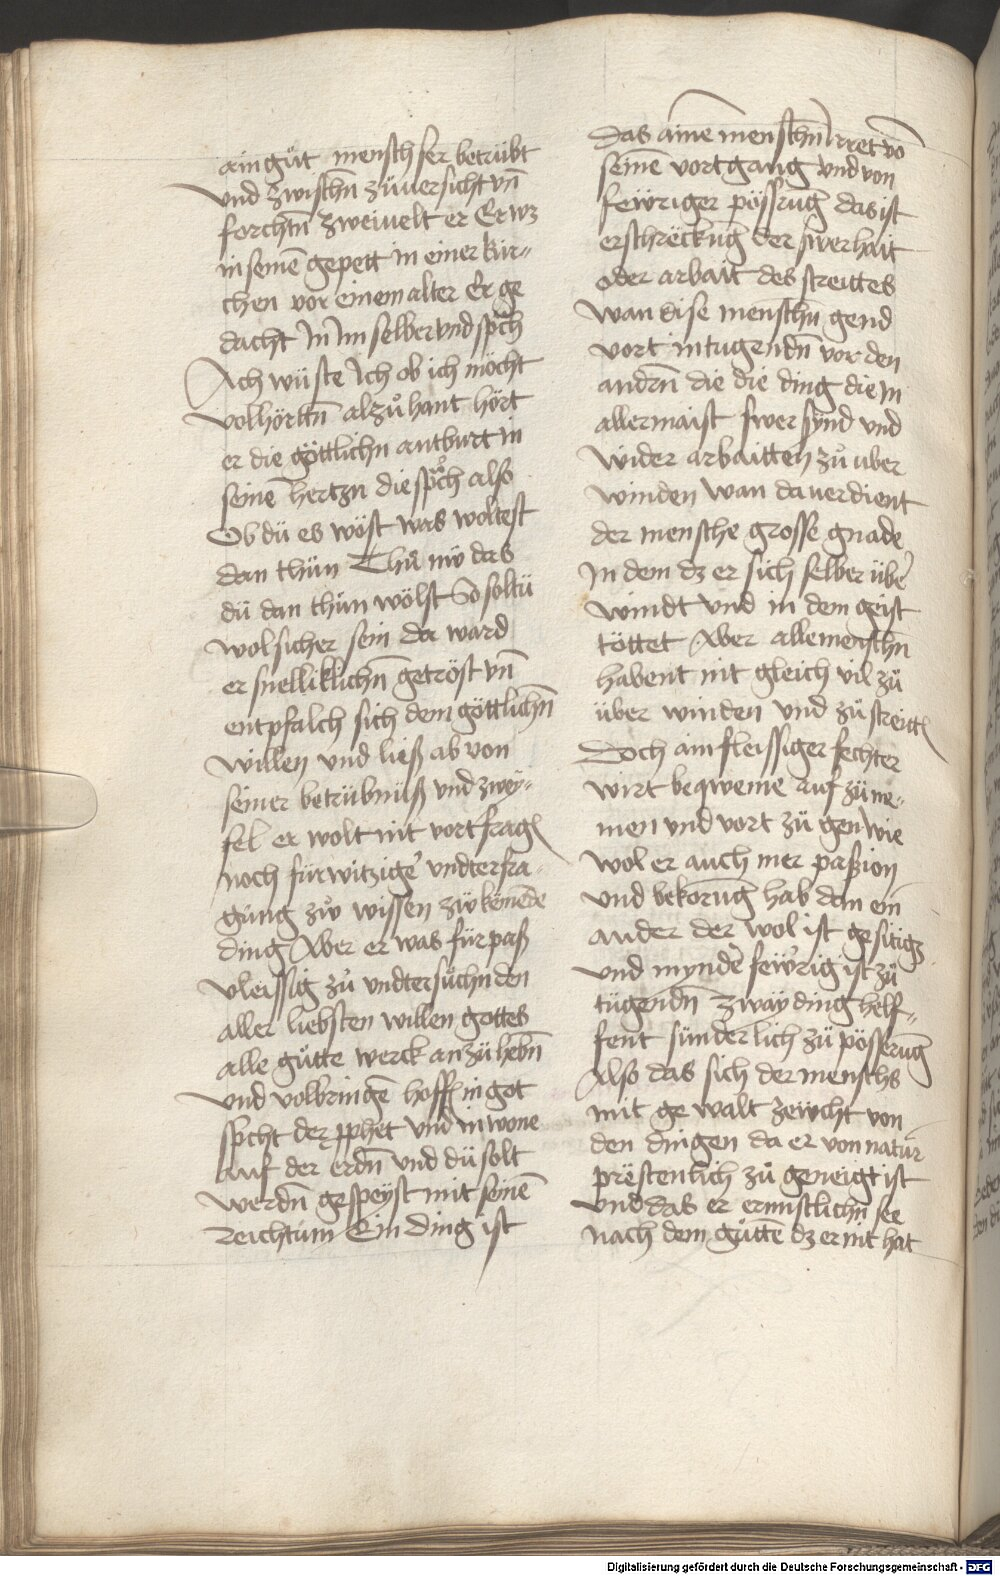 ain gůt mensch ser betrübt
und zwischn̄ züuersicht vn̄
forchtn̄ zweiuelt er Er wz
in seinē gepett in einer kir-
chen vor einem alter Er ge
dacht In im selber und sp̄ch
Ach wüste Ich ob ich möcht
volhörttn̄ alzůhant hört
er die göttlichn antburt in
seinē hertzn die sp̄ch also
Ob dü es wöst was woltest
dan thün Thů nw das
dü dan thün wölst So soltü
wol sicher sein da ward
er snelliklichn̄ getröst vn̄
entpfalch sich dem göttlichn̄
willen und ließ ab von
seiner betrübnüß und zwey-
fel er wolt nit vort fragn
noch fürwitzigē undterfra-
gung zů wissen zükemēde
ding Aber er was für paß
vleissig zů undtersuchn den
aller liebsten willen gottes
alle gůtte werck anzühebn̄
und volbringē hoff in got
sp̄cht der p̄phet und in wone
auf der erdn̄ und dü solt
werdn̄ gespeyst mit seinē
reichtum Ein ding ist
das ainē menschn̄ Irret vō
seinē vortgang und von
fewriger pössrūg das ist
erschreckūg der swerhait
oder arbait des streittes
wan dise menschn̄ gend
vort in tugendn̄ vor den
andrn̄ die die ding die In
allermaist swer synd und
wider arbaitten zů uber
winden wan da uerdient
der mensche grosse gnade
In dem dz er sich selber übē
windt und in dem geist
töttet Aber alle menschn̄
habent nit gleich vil zů
über winden und zů streittn
Doch ain fleissiger fechter
wirt beqweme auf zü ne-
men und vort zü gen wie
wol er auch mer paßion
und bekorūg hab dan ein
ander der wol ist gesitigz
und myndē fewrig ist zů
tügendn̄ zway ding helf-
fent sünderlich zü pösserūg
Also das sich der menschs
mit gewalt zewcht von
den dingen da er von natur
prëstenlich zů geneigt ist
und das er ernnstlichn̄ see
nach dem gůttē dz er nit hat
Digitalisierung gefördert durch die Deutsche Forschungsgemeinschaft - DFG